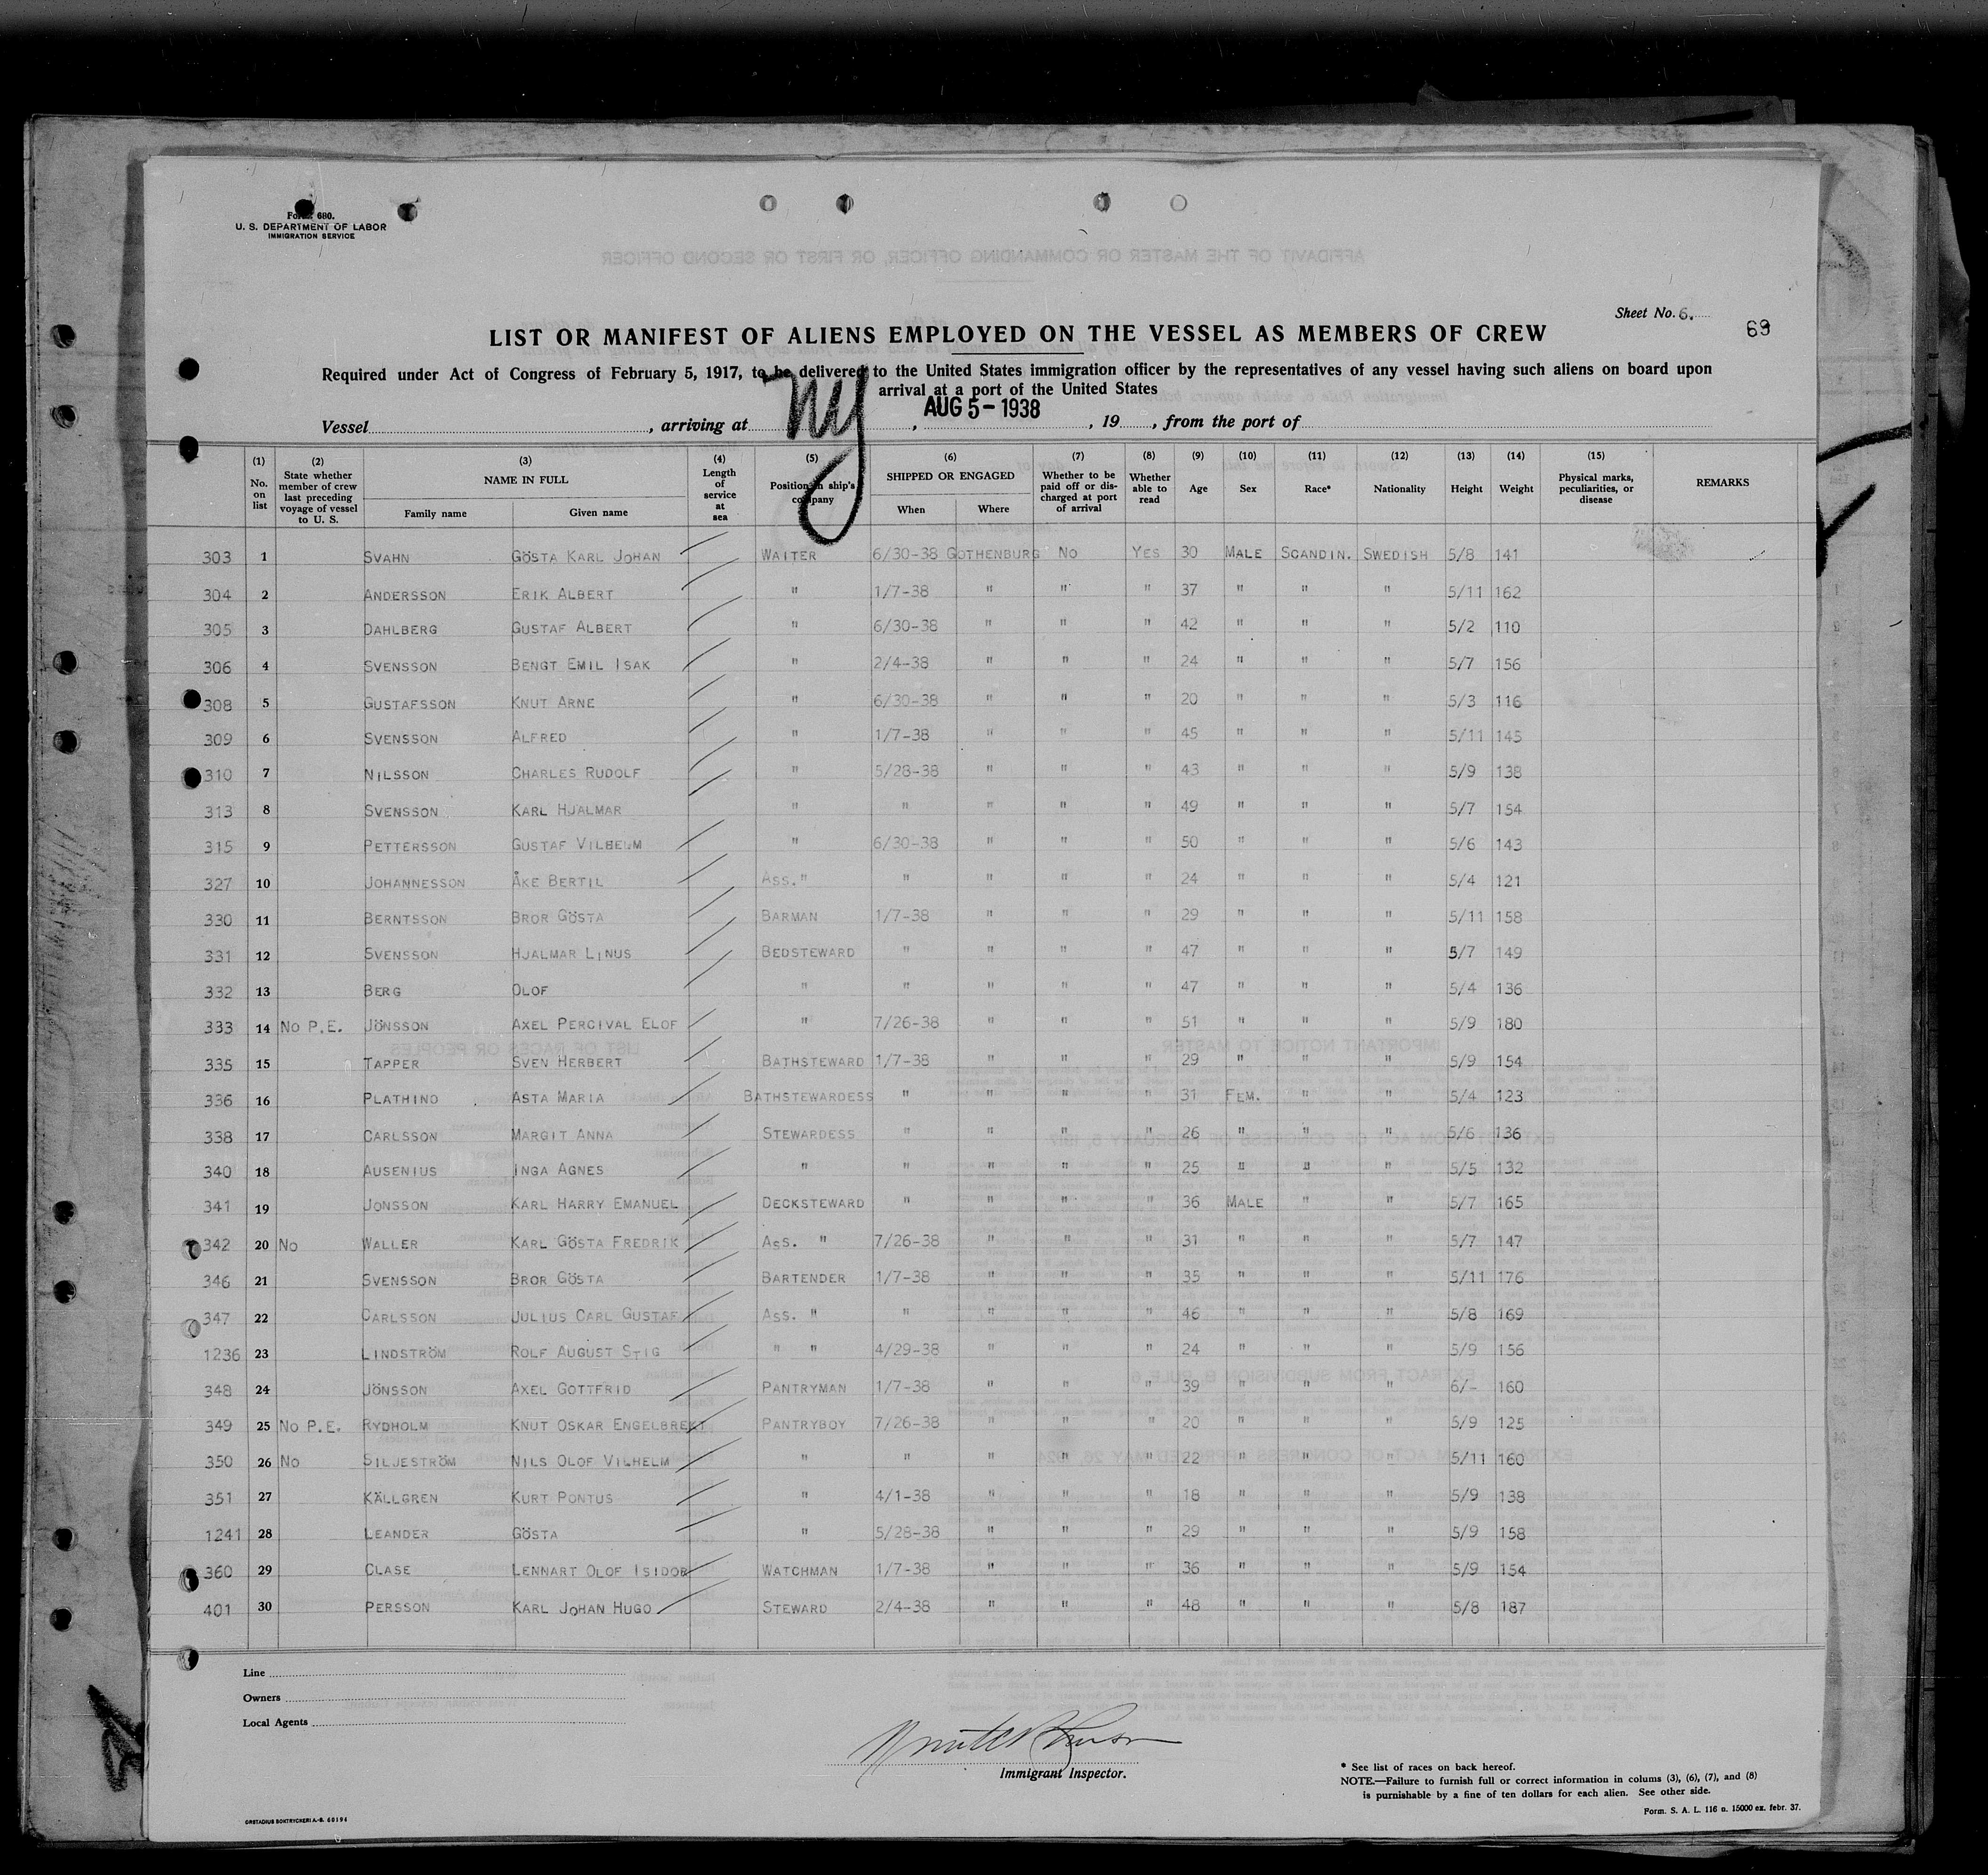 Form 680.
U. S. DEPARTMENT OF LABOR
IMMIGRATION SERVICE
Sheet No. 6.
69
LIST OR MANIFEST OF ALIENS EMPLOYED ON THE VESSEL AS MEMBERS OF CREW
Required under Act of Congress of February 5, 1917, to be delivered to the United States immigration officer by the representatives of any vessel having such aliens on board upon
arrival at a port of the United States
Vessel , arriving at NY , AUG 5-1938 , 19 , from the port of
(1) No. on list (2) State whether member of crew last preceding voyage of vessel to U. S. (3) NAME IN FULL Family name Given name (4) Length of service at sea (5) Position in ship's company (6) SHIPPED OR ENGAGED When Where (7) Whether to be paid off or discharged at port of arrival (8) Whether able to read (9) Age (10) Sex (11) Race* (12) Nationality (13) Height (14) Weight (15) Physical marks, peculiarities, or disease REMARKS
303 1 SVAHN GÖSTA KARL JOHAN WAITER 6/30-38 GOTHENBURG NO YES 30 MALE SCANDIN. SWEDISH 5/8 141
304 2 ANDERSSON ERIK ALBERT " 1/7-38 " " " 37 " " " 5/11 162
305 3 DAHLBERG GUSTAF ALBERT " 6/30-38 " " " 42 " " " 5/2 110
306 4 SVENSSON BENGT EMIL ISAK " 2/4-38 " " " 24 " " " 5/7 156
308 5 GUSTAFSSON KNUT ARNE " 6/30-38 " " " 20 " " " 5/3 116
309 6 SVENSSON ALFRED " 1/7-38 " " " 45 " " " 5/11 145
310 7 NILSSON CHARLES RUDOLF " 5/28-38 " " " 43 " " " 5/9 138
313 8 SVENSSON KARL HJALMAR " " " " " 49 " " " 5/7 154
315 9 PETTERSSON GUSTAF VILHELM " 6/30-38 " " " 50 " " " 5/6 143
327 10 JOHANNESSON ÅKE BERTIL ASS." " " " " 24 " " " 5/4 121
330 11 BERNTSSON BROR GÖSTA BARMAN 1/7-38 " " " 29 " " " 5/11 158
331 12 SVENSSON HJALMAR LINUS BEDSTEWARD " " " " 47 " " " 5/7 149
332 13 BERG OLOF " " " " " 47 " " " 5/4 136
333 14 NO P.E. JÖNSSON AXEL PERCIVAL ELOF " 7/26-38 " " " 51 " " " 5/9 180
335 15 TAPPER SVEN HERBERT BATHSTEWARD 1/7-38 " " " 29 " " " 5/9 154
336 16 PLATHINO ASTA MARIA BATHSTEWARDESS " " " " 31 FEM. " " 5/4 123
338 17 CARLSSON MARGIT ANNA STEWARDESS " " " " 26 " " " 5/6 136
340 18 AUSENIUS INGA AGNES " " " " " 25 " " " 5/5 132
341 19 JONSSON KARL HARRY EMANUEL DECKSTEWARD " " " " 36 MALE " " 5/7 165
342 20 NO WALLER KARL GÖSTA FREDRIK ASS. " 7/26-38 " " " 31 " " " 5/7 147
346 21 SVENSSON BROR GÖSTA BARTENDER 1/7-38 " " " 35 " " " 5/11 176
347 22 CARLSSON JULIUS CARL GUSTAF ASS. " " " " " 46 " " " 5/8 169
1236 23 LINDSTRÖM ROLF AUGUST STIG " " 4/29-38 " " " 24 " " " 5/9 156
348 24 JÖNSSON AXEL GOTTFRID PANTRYMAN 1/7-38 " " " 39 " " " 6/- 160
349 25 NO P.E. RYDHOLM KNUT OSKAR ENGELBREKT PANTRYBOY 7/26-38 " " " 20 " " " 5/9 125
350 26 NO SILJESTRÖM NILS OLOF VILHELM " " " " " 22 " " " 5/11 160
351 27 KÄLLGREN KURT PONTUS " 4/1-38 " " " 18 " " " 5/9 138
1241 28 LEANDER GÖSTA " 5/28-38 " " " 29 " " " 5/9 158
360 29 CLASE LENNART OLOF ISIDOR WATCHMAN 1/7-38 " " " 36 " " " 5/9 154
401 30 PERSSON KARL JOHAN HUGO STEWARD 2/4-38 " " " 48 " " " 5/8 187
Line
Owners
Local Agents
Immigrant Inspector.
* See list of races on back hereof.
NOTE.—Failure to furnish full or correct information in colums (3), (6), (7), and (8)
is punishable by a fine of ten dollars for each alien. See other side.
Form. S. A. L. 116 a. 15000 ex. febr. 37.
ORSTADIUS BOKTRYCKERI A.-B. 60194